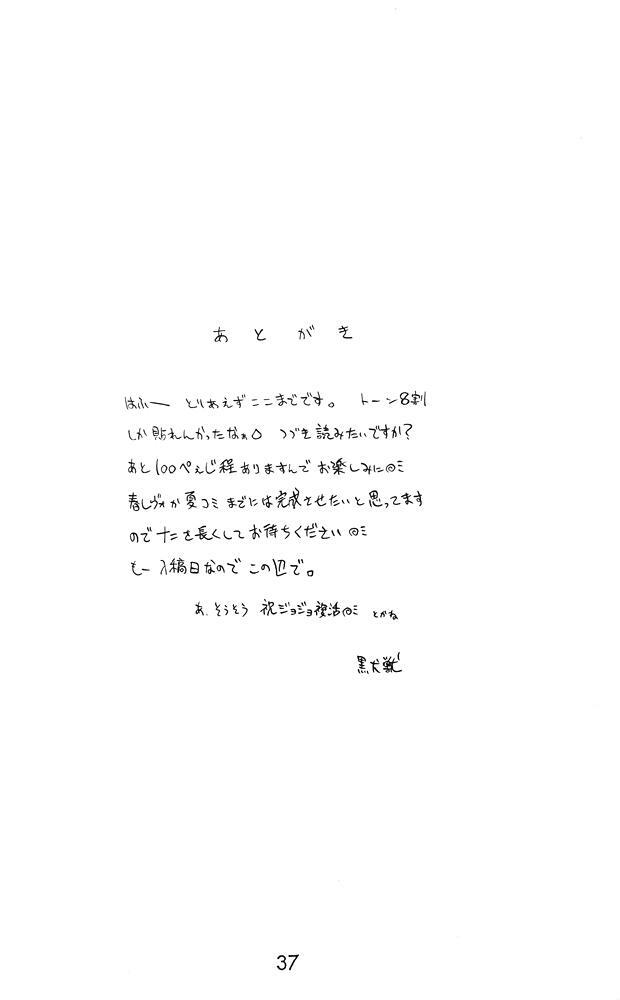 あとがき
はふー とりあえずここまでです。 トーン8割
しか貼れんかったなぁ つづき読みたいですか?
あと100ぺぇじ程ありますんでお楽しみに
春レヴォか夏コミまでには完成させたいと思ってます
ので十二を長くしてお待ちください
もー入稿日なのでこの辺で。
あ、そうそう 祝ジョジョ複活 とかね
黒犬獣
37